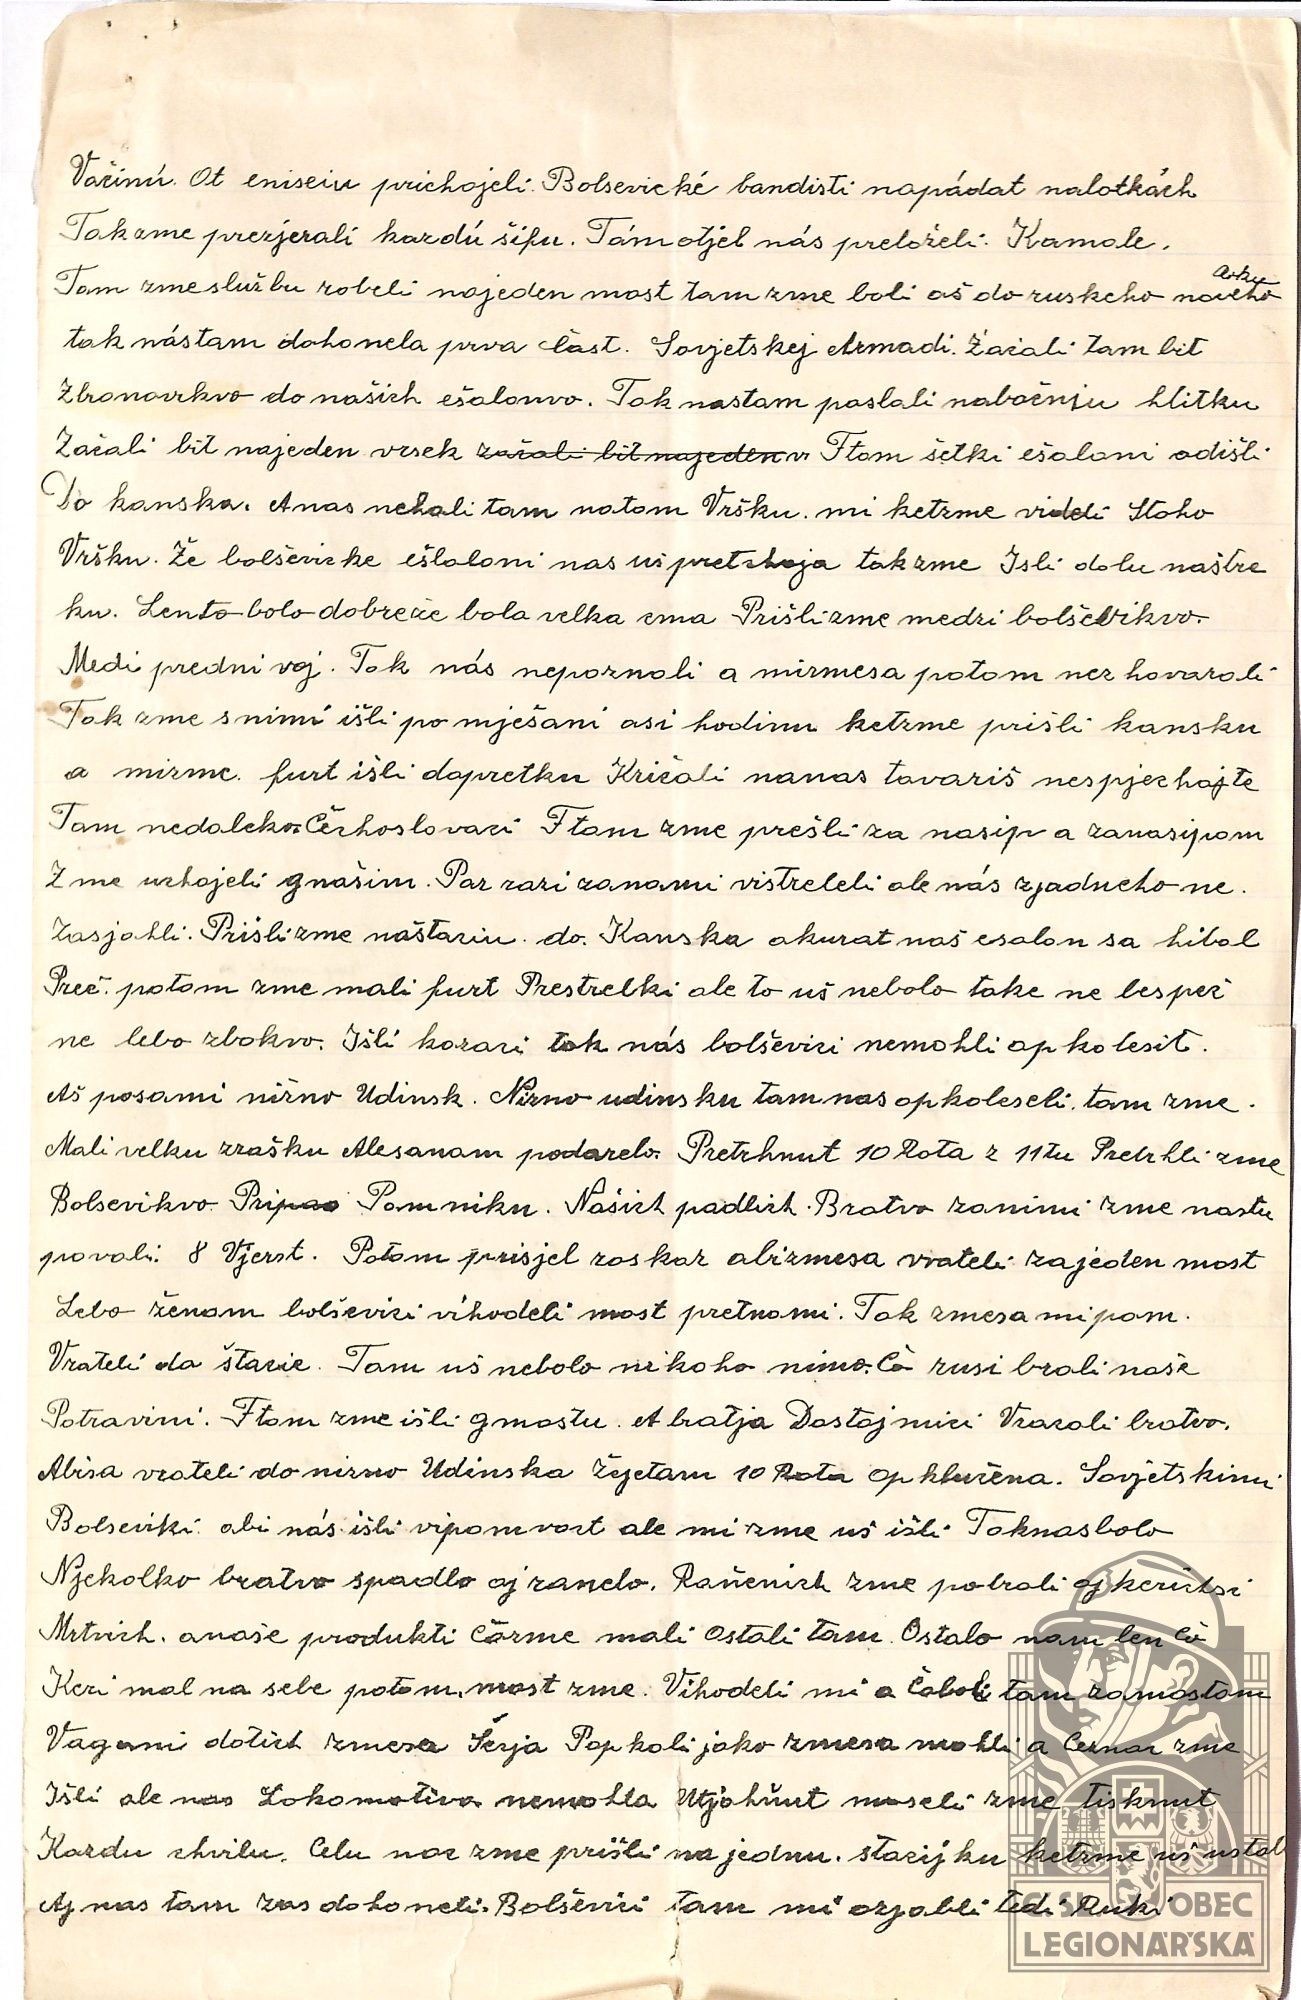 Vačinú. Ot eniseiu prichojeli. Bolsevické bandisti napádat nalotkách
Tak zme prezjerali kazdú šifu. Tám otjel nás preloželi. Kamale.
Tam zme službu robeli najeden most tam zme boli aš do ruskeho nového roku
tak nástam dohonela prva část. Sovjetskej Armadi. Začali tam bit
Zbronovikvo do našich ešalonvo. Tak nastam poslali nabočnju hlitku
Začali bit najeden vrsek začali bit najeden v Ftom šetki ešaloni odišli
Do kanska. Anas nehali tam natom Vršku. mi ketzme videli Stoho
Vršku. Že bolševicke ešaloni nas uš pretchoja takzme Isli dolu naštre
ku. Lento bolo dobre že bola velka cma Prišli zme medzi bolševikvo.
Medi predni voj. Tak nás nepoznali a mizmesa potom nezhovarali
Tak zme snimi išli po mješani asi hodinu ketzme prišli kansku
a mizme. furt išli dopretku Kričali nanas tovariš nespjechajte
Tam nedaleko Čechoslovaci Ftom zme prešli za nasip a zanasipom
Zme uchojeli gnašim. Par razi zanami vistreleli ale nás zjadneho ne.
Zasjahli. Prišli zme naštaciu. do. Kanska akurat naš esalon sa hibal
Preč. potom zme mali furt Prestrelki ale to uš nebolo take ne bespeč
ne lebo zbokvo. Išli kozaci tak nás bolševici nemohli opkolesit.
Aš posami nižno Udinsk. Nizno udinsku tam nas opkoleseli. tam zme.
Mali velku zrašku Alesanam podarelo. Pretrhnut 10 Rota z 11tu Pretrhli zme
Bolsevikvo Pripao Pomniku. Našich padlich. Bratvo zanimi zme nastu
povali. 8 Vjerst. Potom prisjel roskaz abizmesa vrateli zajeden most
Lebo ženam bolševici vihodeli most pretnami. Tak zmesa mi pom.
Vrateli do štacie. Tam uš nebolo nikoho nimo. Čo rusi brali naše
Potravini. Ftom zme išli gmostu. A bratja Dostojnici Vracali bratvo.
Abisa vrateli do nizno Udinska Žejetam 10 Rota opklučena. Sovjetskimi
Bolseviki. abi nás išli vipomvoct ale mi zme uš išli Taknasbolo
Njekolko bratvo spadlo aj ranelo. Raňenich zme pobrali aj kerichsi
Mrtvich. anaše produkti čozme mali Ostali tam. Ostalo nam len čo
Keri mal na sebe potom. most zme. Vihodeli mi a čoboli tam zamostom
Vagoni dotich zmesa Šecja Popkali jako zmesa mohli a Cernoz zme
Išli ale nas Lokomotiva nemohla Utjahňut museli zme tisknut
Kazdu chvilu. Celu noc zme prišli na jednu. stacijku ketzme uš ustal
Aj nas tam zas dohoneli. Bolševici tam mi ozjabli tedi Ruki
Č. SL. OBEC
LEGIONÁŘSKÁ